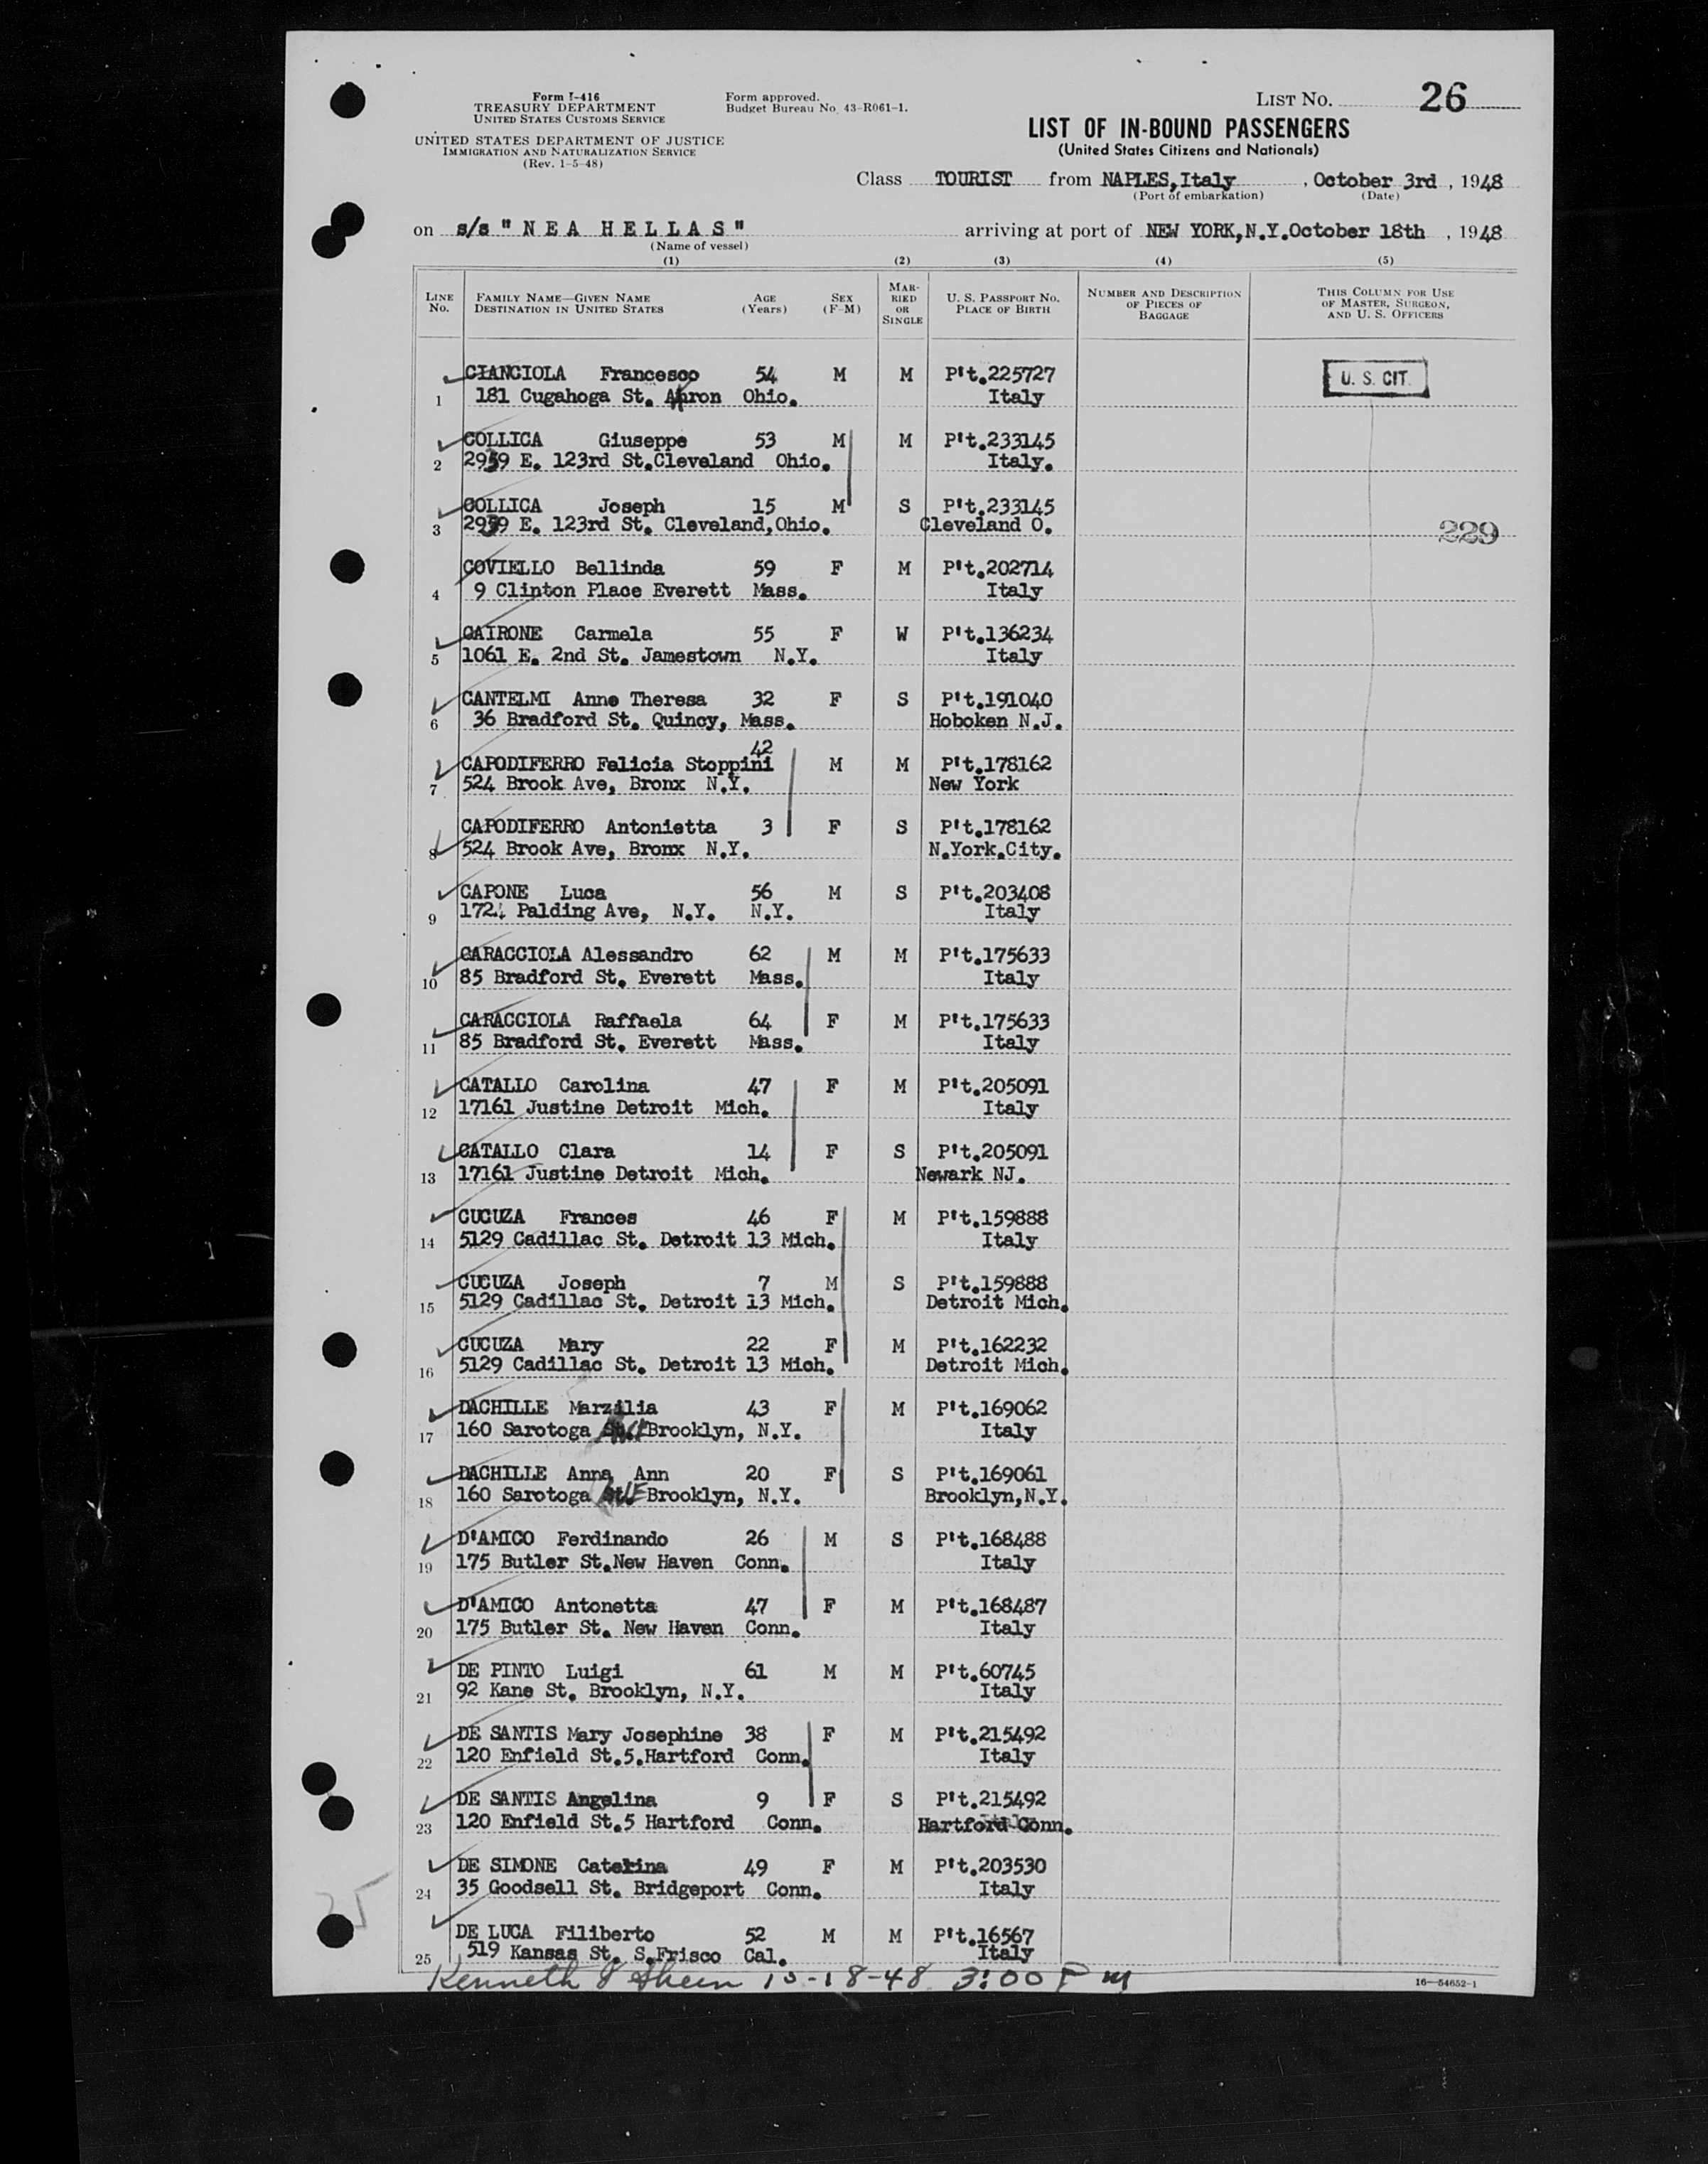 Form I-416
TREASURY DEPARTMENT
UNITED STATES CUSTOMS SERVICE
UNITED STATES DEPARTMENT OF JUSTICE
IMMIGRATION AND NATURALIZATION SERVICE
(Rev. 1-5-48)
Form approved.
Budget Bureau No. 43-R061-1.
LIST NO. 26
LIST OF IN-BOUND PASSENGERS
(United States Citizens and Nationals)
Class TOURIST from NAPLES,Italy , October 3rd , 1948
(Port of embarkation) (Date)
on s/s " N E A H E L L A S " arriving at port of NEW YORK,N.Y.October 18th , 1948
(Name of vessel)
(1) (2) (3) (4) (5)
LINE No. FAMILY NAME—GIVEN NAME DESTINATION IN UNITED STATES AGE (Years) SEX (F-M) MARRIED OR SINGLE U. S. PASSPORT NO. PLACE OF BIRTH NUMBER AND DESCRIPTION OF PIECES OF BAGGAGE THIS COLUMN FOR USE OF MASTER, SURGEON, AND U. S. OFFICERS
CIANCIOLA Francesco 54 M M P't.225727 U. S. CIT.
1 181 Cugahoga St. Akron Ohio. Italy
COLLICA Giuseppe 53 M M P't.233145
2 2939 E. 123rd St.Cleveland Ohio. Italy.
COLLICA Joseph 15 M S P't.233145
3 2939 E. 123rd St. Cleveland,Ohio. Cleveland O. 229
COVIELLO Bellinda 59 F M P't.202714
4 9 Clinton Place Everett Mass. Italy
CAIRONE Carmela 55 F W P't.136234
5 1061 E. 2nd St. Jamestown N.Y. Italy
CANTELMI Anne Theresa 32 F S P't.191040
6 36 Bradford St. Quincy, Mass. Hoboken N.J.
42
CAPODIFERRO Felicia Stoppini M M P't.178162
7 524 Brook Ave, Bronx N.Y. New York
CAPODIFERRO Antonietta 3 F S P't.178162
8 524 Brook Ave, Bronx N.Y. N.York.City.
CAPONE Luca 56 M S P't.203408
9 Palding Ave, N.Y. N.Y. Italy
CARACCIOLA Alessandro 62 M M P't.175633
10 85 Bradford St. Everett Mass. Italy
CARACCIOLA Raffaela 64 F M P't.175633
11 85 Bradford St. Everett Mass. Italy
CATALLO Carolina 47 F M P't.205091
12 17161 Justine Detroit Mich. Italy
CATALLO Clara 14 F S P't.205091
13 17161 Justine Detroit Mich. Newark NJ.
CUCUZA Frances 46 F M P't.159888
14 5129 Cadillac St. Detroit 13 Mich. Italy
CUCUZA Joseph 7 M S P't.159888
15 5129 Cadillac St. Detroit 13 Mich. Detroit Mich.
CUCUZA Mary 22 F M P't.162232
16 5129 Cadillac St. Detroit 13 Mich. Detroit Mich.
DACHILLE Marzilia 43 F M P't.169062
17 160 Sarotoga Brooklyn, N.Y. Italy
DACHILLE Anna Ann 20 F S P't.169061
18 160 Sarotoga Brooklyn, N.Y. Brooklyn,N.Y.
D'AMICO Ferdinando 26 M S P't.168488
19 175 Butler St.New Haven Conn. Italy
D'AMICO Antonetta 47 F M P't.168487
20 175 Butler St. New Haven Conn. Italy
DE PINTO Luigi 61 M M P't.60745
21 92 Kane St. Brooklyn, N.Y. Italy
DE SANTIS Mary Josephine 38 F M P't.215492
22 120 Enfield St.5.Hartford Conn. Italy
DE SANTIS Angelina 9 F S P't.215492
23 120 Enfield St.5 Hartford Conn. Hartford Conn.
DE SIMONE Caterina 49 F M P't.203530
24 35 Goodsell St. Bridgeport Conn. Italy
DE LUCA Filiberto 52 M M P't.16567
25 519 Kansas St. S.Frisco Cal. Italy
Kenneth 10-18-48 3:00 P m
16—54652-1